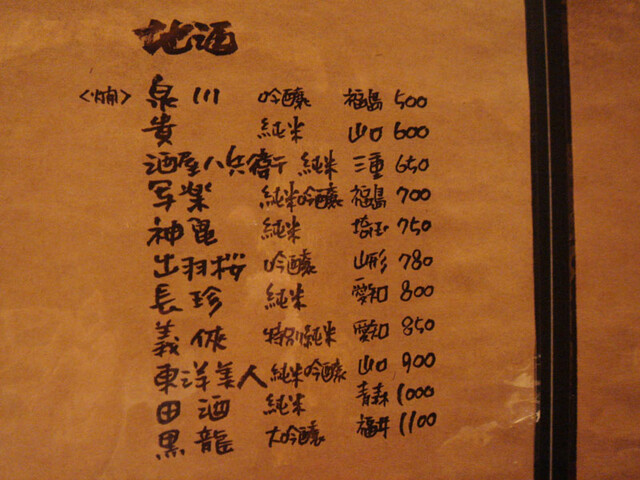 地酒
<燗> 泉川 吟醸 福島 500
貴 純米 山口 600
酒屋八兵衛 純米 三重 650
写楽 純米吟醸 福島 700
神亀 純米 埼玉 750
出羽桜 吟醸 山形 780
長珍 純米 愛知 800
義侠 特別純米 愛知 850
東洋美人 純米吟醸 山口 900
田酒 純米 青森 1000
黒龍 大吟醸 福井 1100